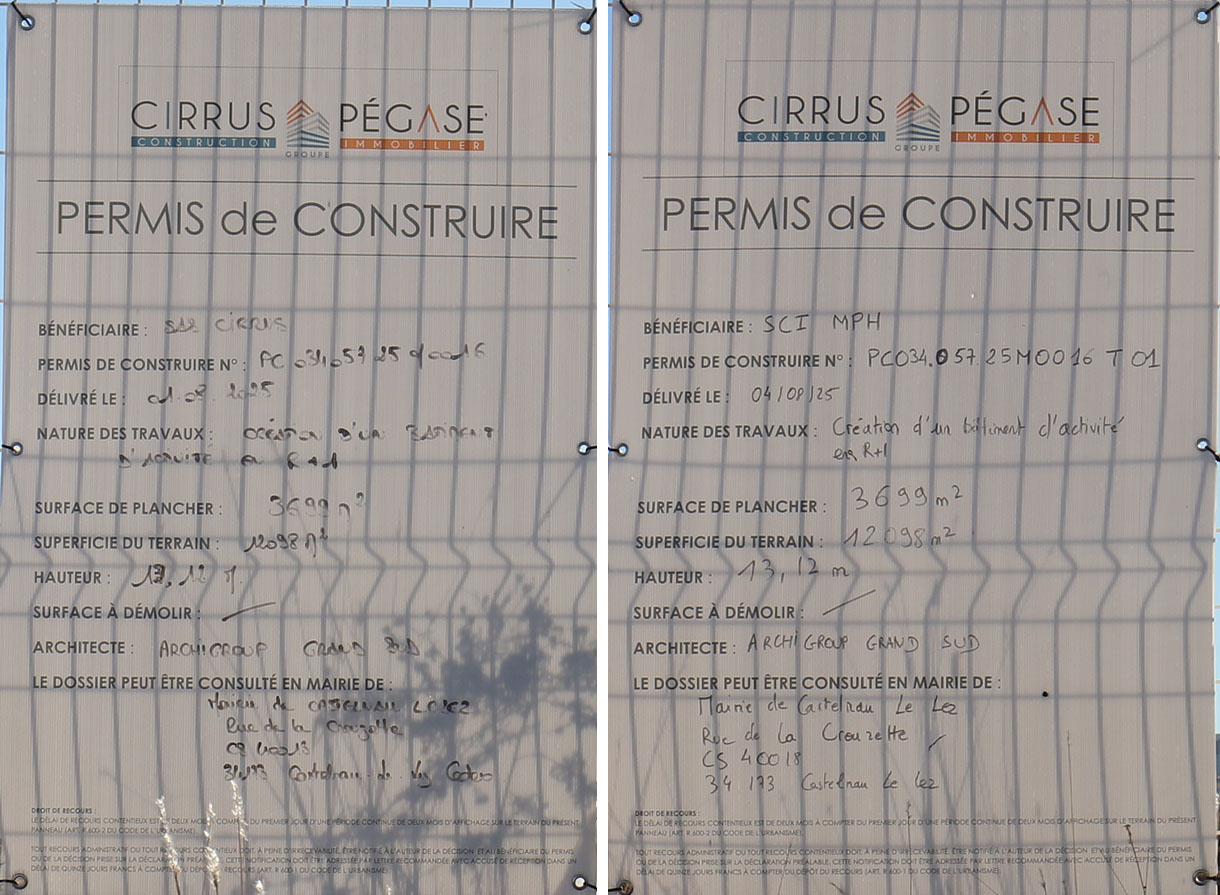 CIRRUS PÉGASE
CONSTRUCTION GROUPE IMMOBILIER
PERMIS de CONSTRUIRE
BÉNÉFICIAIRE : CIRRUS
PERMIS DE CONSTRUIRE N° : PC 034 057 25 0016
DÉLIVRÉ LE : 2025
NATURE DES TRAVAUX : CRÉATION D'UN BATIMENT
D'ACTIVITÉ EN R+1
SURFACE DE PLANCHER : 3699 m²
SUPERFICIE DU TERRAIN : 12098 m²
HAUTEUR : 13,12 m
SURFACE À DÉMOLIR :
ARCHITECTE : ARCHIGROUP GRAND SUD
LE DOSSIER PEUT ÊTRE CONSULTÉ EN MAIRIE DE :
Mairie de CASTELNAU LE LEZ
Rue de la Crouzette
34173 Castelnau Le Lez Cedex
DROIT DE RECOURS :
LE DÉLAI DE RECOURS CONTENTIEUX EST DE DEUX MOIS À COMPTER DU PREMIER JOUR D'UNE PÉRIODE CONTINUE DE DEUX MOIS D'AFFICHAGE SUR LE TERRAIN DU PRÉSENT
PANNEAU (ART. R.600-2 DU CODE DE L'URBANISME).
TOUT RECOURS ADMINISTRATIF OU TOUT RECOURS CONTENTIEUX DOIT, À PEINE D'IRRECEVABILITÉ, ÊTRE NOTIFIÉ À L'AUTEUR DE LA DÉCISION ET AU BÉNÉFICIAIRE DU PERMIS
OU DE LA DÉCISION PRISE SUR LA DÉCLARATION PRÉALABLE. CETTE NOTIFICATION DOIT ÊTRE ADRESSÉE PAR LETTRE RECOMMANDÉE AVEC ACCUSÉ DE RÉCEPTION DANS UN
DÉLAI DE QUINZE JOURS FRANCS À COMPTER DU DÉPÔT DU RECOURS (ART. R.600-1 DU CODE DE L'URBANISME).
CIRRUS PÉGASE
CONSTRUCTION GROUPE IMMOBILIER
PERMIS de CONSTRUIRE
BÉNÉFICIAIRE : SCI MPH
PERMIS DE CONSTRUIRE N° : PC034.057.25M0016 T 01
DÉLIVRÉ LE : 04/08/25
NATURE DES TRAVAUX : Création d'un bâtiment d'activité
en R+1
SURFACE DE PLANCHER : 3699 m²
SUPERFICIE DU TERRAIN : 12098 m²
HAUTEUR : 13,12 m
SURFACE À DÉMOLIR :
ARCHITECTE : ARCHIGROUP GRAND SUD
LE DOSSIER PEUT ÊTRE CONSULTÉ EN MAIRIE DE :
Mairie de Castelnau Le Lez
Rue de La Crouzette
CS 40018
34 173 Castelnau Le Lez
DROIT DE RECOURS :
LE DÉLAI DE RECOURS CONTENTIEUX EST DE DEUX MOIS À COMPTER DU PREMIER JOUR D'UNE PÉRIODE CONTINUE DE DEUX MOIS D'AFFICHAGE SUR LE TERRAIN DU PRÉSENT
PANNEAU (ART. R.600-2 DU CODE DE L'URBANISME).
TOUT RECOURS ADMINISTRATIF OU TOUT RECOURS CONTENTIEUX DOIT, À PEINE D'IRRECEVABILITÉ, ÊTRE NOTIFIÉ À L'AUTEUR DE LA DÉCISION ET AU BÉNÉFICIAIRE DU PERMIS
OU DE LA DÉCISION PRISE SUR LA DÉCLARATION PRÉALABLE. CETTE NOTIFICATION DOIT ÊTRE ADRESSÉE PAR LETTRE RECOMMANDÉE AVEC ACCUSÉ DE RÉCEPTION DANS UN
DÉLAI DE QUINZE JOURS FRANCS À COMPTER DU DÉPÔT DU RECOURS (ART. R.600-1 DU CODE DE L'URBANISME).